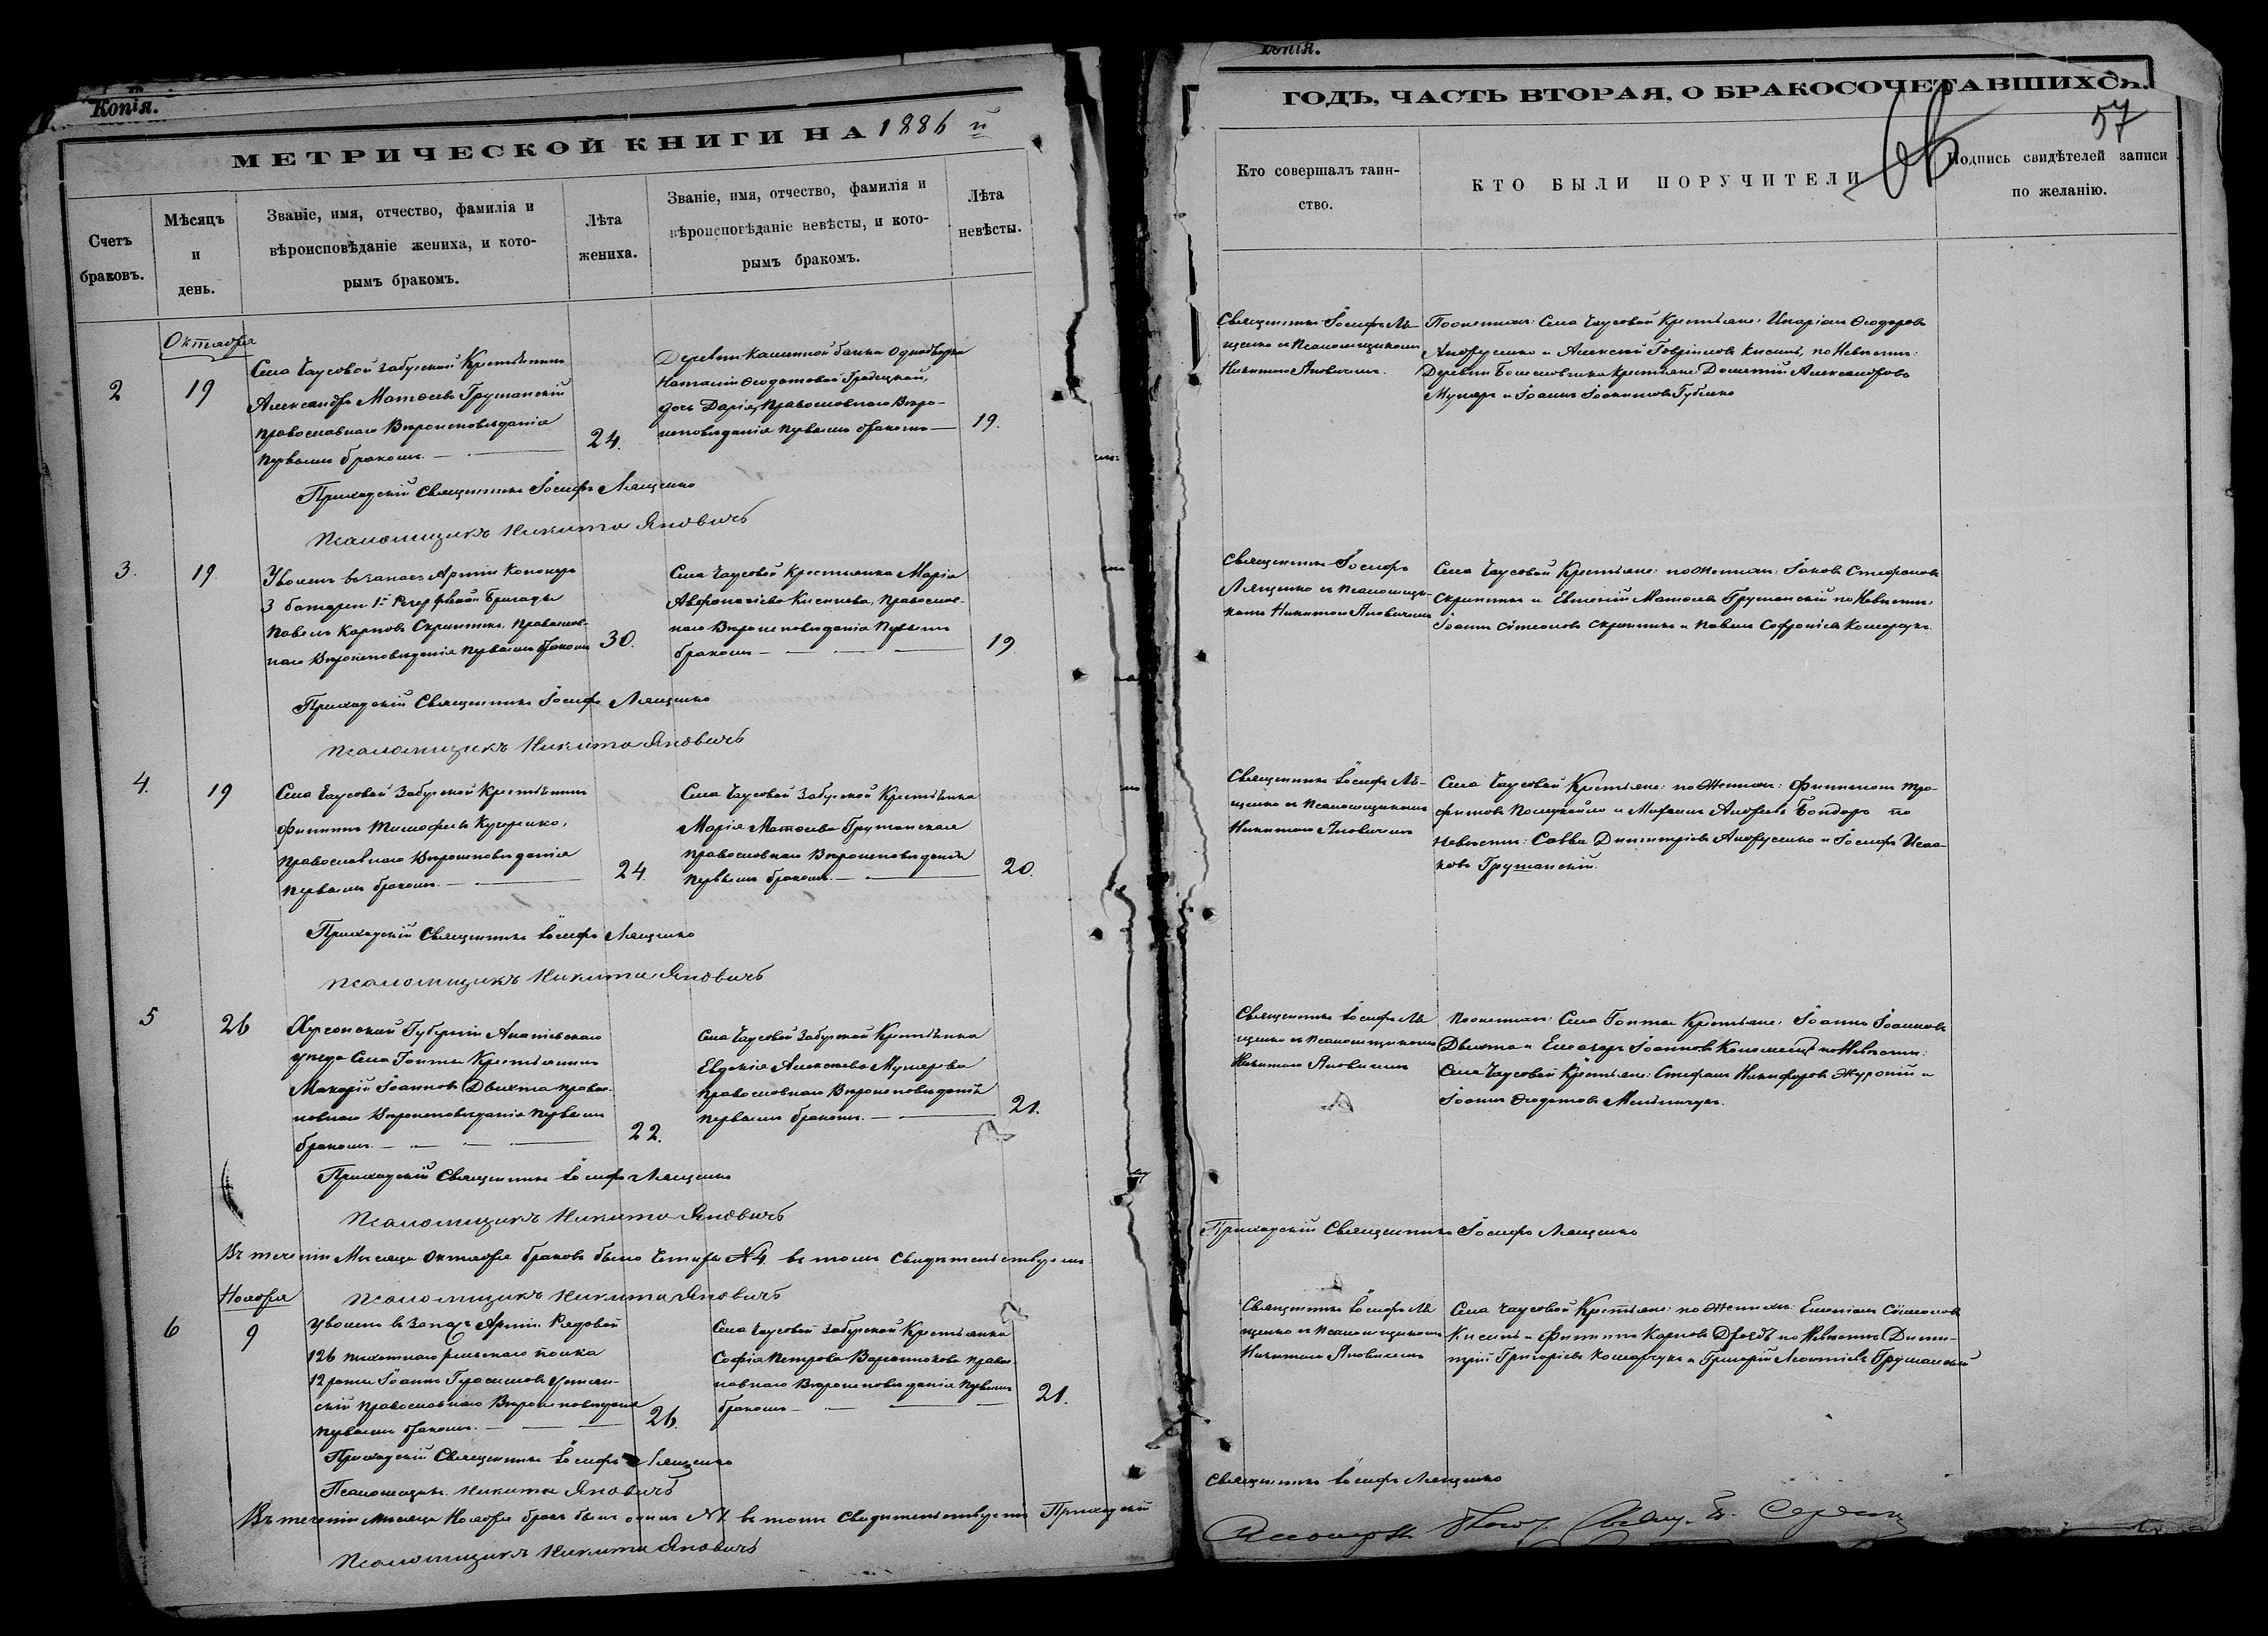 Копія.
МЕТРИЧЕСКОЙ КНИГИ НА 1886 й
Счетъ браковъ.
Мѣсяцъ и день.
Званіе, имя, отчество, фамилія и вѣроисповѣданіе жениха, и которымъ бракомъ.
Лѣта жениха.
Званіе, имя, отчество, фамилія и вѣроисповѣданіе невѣсты, и которымъ бракомъ.
Лѣта невѣсты.
Октября
2
19
Села Чаусовой Забугской Крестьянинъ
Александръ Матѳеевъ Грушанскій
православнаго Вѣроисповѣданія
первымъ бракомъ.
24.
Деревни Калиновой балки Однодворки
Наталіи Ѳеодотовой
дочь Дарія, Православнаго Вѣро-
исповѣданія первымъ бракомъ
19.
Приходскій Священникъ Іосифъ Лященко
Псаломщикъ Никита Яновичъ
3.
19.
Уволен. въ запасъ Арміи Канониръ
3 батареи 1й Резервной бригады
Павелъ Карповъ Скрипникъ, православ-
наго Вѣроисповѣданія первымъ бракомъ
30.
Села Чаусовой Крестьянка Марія
Киселева, православ-
наго Вѣроисповѣданія первымъ
бракомъ
19
Приходскій Священникъ Іосифъ Лященко
Псаломщикъ Никита Яновичъ
4.
19
Села Чаусовой Забугской Крестьянинъ
Филиппъ Тимофеевъ Кучеренко,
православнаго Вѣроисповѣданія
первымъ бракомъ.
24.
Села Чаусовой Забугской Крестьянка
Марія Матѳеева Грушанская
православнаго Вѣроисповѣданія
первымъ бракомъ.
20.
Приходскій Священникъ Іосифъ Лященко
Псаломщикъ Никита Яновичъ
5
26
Херсонской Губерніи Ананіевскаго
уѣзда Села Гопты Крестьянинъ
Макарій Іоанновъ православнаго Вѣроисповѣданія первымъ
бракомъ.
22.
Села Чаусовой Забугской Крестьянка
Евдокія Алексѣева Мулярева
православнаго Вѣроисповѣданія
первымъ бракомъ.
21.
Приходскій Священникъ Іосифъ Лященко
Псаломщикъ Никита Яновичъ
Въ теченіи Мѣсяца Октября браковъ было Четыре №4. въ томъ Свидѣтельствуемъ
Псаломщикъ Никита Яновичъ
Ноября
6
9
Уволен. въ Запасъ Арміи Рядовой
126 пѣхотнаго Рыльскаго полка
12 роты Іоаннъ Герасимовъ
православнаго Вѣроисповѣданія
первымъ бракомъ.
26.
Села Чаусовой Забугской Крестьянка
Софія Петрова православнаго Вѣроисповѣданія первымъ
бракомъ
21.
Приходскій Священникъ Іосифъ Лященко
Псаломщикъ Никита Яновичъ
Въ теченіи мѣсяца Ноября бракъ былъ одинъ №1. въ томъ Свидѣтельствуемъ Приходскій
Псаломщикъ Никита Яновичъ
Копія.
ГОДЪ, ЧАСТЬ ВТОРАЯ, О БРАКОСОЧЕТАВШИХСЯ.
57
Кто совершалъ таинство.
КТО БЫЛИ ПОРУЧИТЕЛИ
Подпись свидѣтелей записи по желанію.
Священникъ Іосифъ Ля-
щенко съ Псаломщикомъ
Никитою Яновичемъ.
По женихѣ: Села Чаусовой Крестьяне: Иларіонъ Ѳеодоровъ
Андрусенко и Алексѣй Гавріиловъ Кисель, по Невѣстѣ:
Деревни крестьяне: Дометій Александровъ
Муляръ и Іоаннъ Іоакимовъ Губенко
Священникъ Іосифъ
Лященко съ Псаломщи-
комъ Никитою Яновичемъ
Села Чаусовой Крестьяне: по Женихѣ: Іаковъ Стефановъ
Скрипникъ и Евгеній Матѳеевъ Грушанскій по Невѣстѣ:
Іоаннъ Сѵмеоновъ Скрипникъ и Павелъ Софроніевъ Комарчукъ.
Священникъ Іосифъ Ля-
щенко съ Псаломщикомъ
Никитою Яновичемъ
Села Чаусовой Крестьяне: по Женихѣ: Филимонъ Тро-
фимовъ и Михаилъ Андреевъ Бондарь по
Невѣстѣ: Савва Димитріевъ Андрусенко и Іосифъ Исаа-
ковъ Грушанскій.
Священникъ Іосифъ Ля-
щенко съ Псаломщикомъ
Никитою Яновичемъ
По женихѣ: Села Гопты Крестьяне: Іоаннъ Іоанновъ
и Елеазаръ Іоанновъ Коломеецъ по Невѣстѣ:
Села Чаусовой Крестьяне: Стефанъ Никифоровъ и
Іоаннъ Ѳеодотовъ Мельничукъ.
Приходскій Священникъ Іосифъ Лященко
Священникъ Іосифъ Ля-
щенко съ Псаломщикомъ
Никитою Яновичемъ
Села Чаусовой Крестьяне: по Женихѣ: Сѵмеоновъ
Кисель и Филиппъ Карповъ Дроздъ по Невѣстѣ: Дими-
трій Григоріевъ Комарчукъ и Григорій Леонтіевъ Грушанскій
Священникъ Іосифъ Лященко